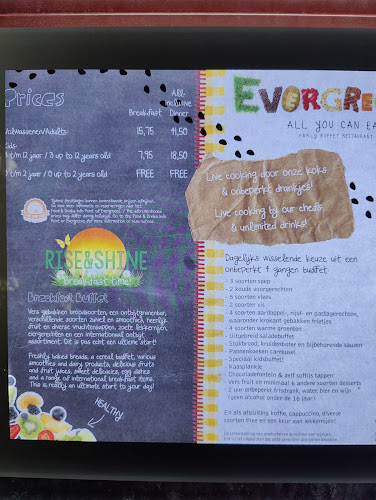 Prices
Breakfast
All-
inclusive
Dinner
Volwassenen/Adults:
15,75
41,50
Kids:
3 t/m 12 jaar / 3 up to 12 years old
7,95
18,50
0 t/m 2 jaar / 0 up to 2 years old
FREE
FREE
RISE&SHINE
breakfast time!
Breakfast Buffet
Vers gebakken broodsoorten, een ontbijtgranenbar,
verschillende soorten zuivel en smoothies, heerlijk
fruit en diverse vruchtensappen, zoete lekkernijen,
eiergerechten en een internationaal ontbijt
assortiment. Dit is pas echt een ultieme start!
Freshly baked breads, a cereal buffet, various
smoothies and dairy products, delicious fruits
and fruit juices, sweet delicacies, egg dishes
and a range of international breakfast items.
This is really an ultimate start to your day!
HEALTHY
EVORGRE
ALL YOU CAN EA
FAMILY BUFFET RESTAURANT
Live cooking door onze koks
& onbeperkt drankjes!
Live cooking by our chefs
& unlimited drinks!
Dagelijks wisselende keuze uit een
onbeperkt 4 gangen buffet
- 3 soorten soep
- 2 koude voorgerechten
- 5 soorten vlees
- 2 soorten vis
- 4 soorten aardappel-, rijst- en pastagerechten,
waaronder krokant gebakken frietjes
- 4 soorten warme groenten
- Uitgebreid saladebuffet
- Stokbrood, kruidenboter en bijbehorende sauzen
- Pannenkoeken carrousel
- Speciaal kidsbuffet
- Kaasplankje
- Chocoladefontein & zelf softijs tappen
- Vers fruit en minimaal 6 andere soorten desserts
- 2 uur onbeperkt frisdrank, water, bier en wijn
(geen alcohol onder de 18 jaar)
En als afsluiting koffie, cappuccino, diverse
soorten thee en een keur aan lekkernijen!